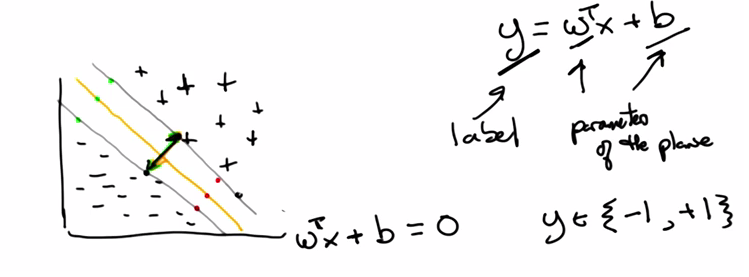 y = wᵀx + b
label
parameters
of the plane
wᵀx + b = 0
y ∈ {-1, +1}